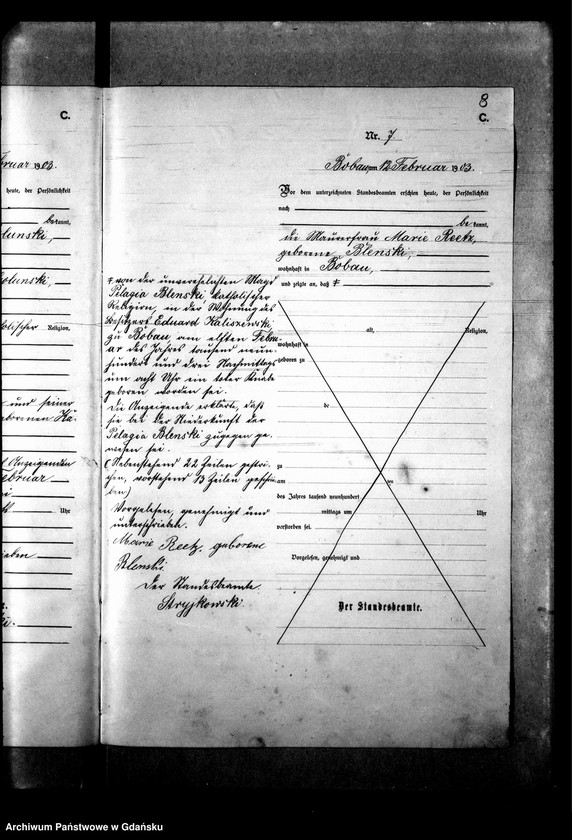 8
C.
C.
Nr. 7.
Bobau am 12 Februar 1903.
Vor dem unterzeichneten Standesbeamten erschien heute, der Persönlichkeit
nach
bekannt,
die Maurerfrau Marie Reetz,
geborene Blenski,
wohnhaft in Bobau,
und zeigte an, daß ǂ
ǂ von der unverehelichten Magd
Pelagia Blenski, katholischer
Religion, in der Wohnung des
Besitzers Eduard Kaliszewski,
zu Bobau am elften Febru-
ar des Jahres tausend neun-
hundert und drei Nachmittags
um acht Uhr ein toter Knabe
geboren worden sei.
Die Anzeigende erklärte, daß
sie bei der Niederkunft der
Pelagia Blenski zugegen ge-
wesen sei.
(Nebenstehend 22 Zeilen gestri-
chen, vorstehend 13 Zeilen geschrie-
ben)
Vorgelesen, genehmigt und
unterschrieben.
Marie Reetz, geborene
Blenski.
Der Standesbeamte.
Stryjkowski
alt, Religion,
wohnhaft in
geboren zu
de
zu
am ten
des Jahres tausend neunhundert
mittags um Uhr
verstorben sei.
Vorgelesen, genehmigt und
Der Standesbeamte.
bruar 1903.
heute, der Persönlichkeit
bekannt,
Religion,
und seiner
borenen
Anzeigenden
Februar
Uhr
Archiwum Państwowe w Gdańsku